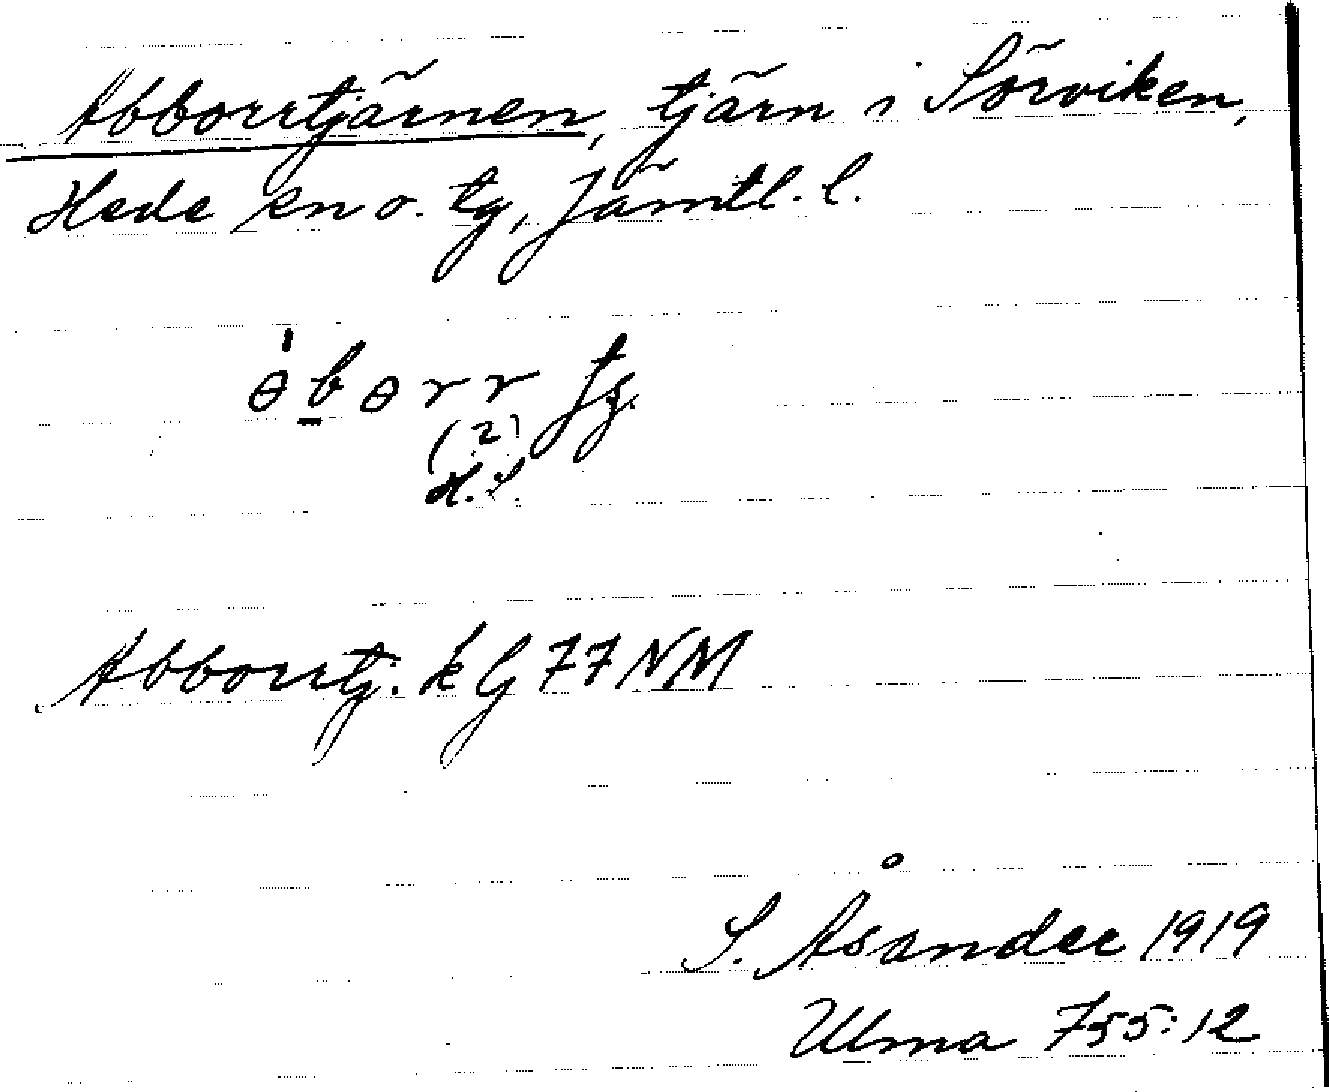 Abborrtjärnen, tjärn i Sörviken,
Hede sn o. tg, Jämtl. l.
ɵ́bɵrr tj.
(?)
H.S.
Abborrtj. k G 77 NM
S. Åsander 1919
Ulma 755:12